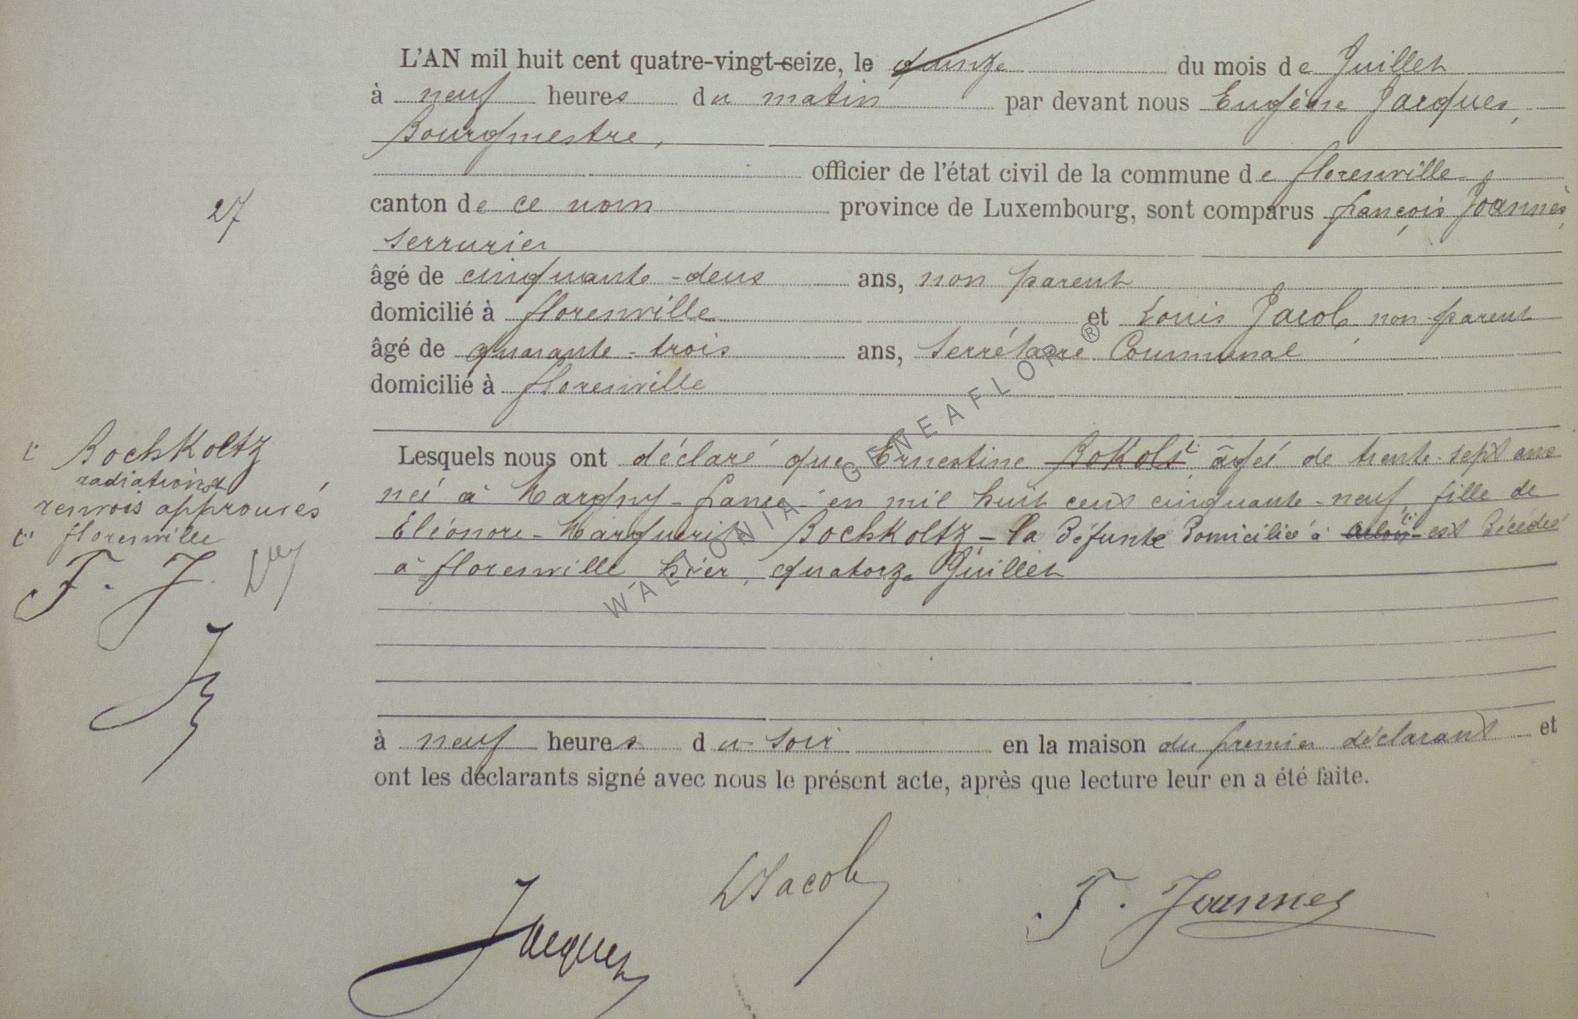 L'AN mil huit cent quatre-vingt-seize, le quinze du mois de Juillet
à neuf heures du matin par devant nous Eugène Jacques,
Bourgmestre,
officier de l'état civil de la commune de florenville
27
canton de ce nom province de Luxembourg, sont comparus françois Joannès,
serrurier
âgé de cinquante-deux ans, non parent
domicilié à florenville et Louis Jacob, non parent
âgé de quarante-trois ans, Secrétaire Communal
domicilié à florenville
Lesquels nous ont déclaré que Ernestine Bokols âgée de trente-sept ans
née à Margny-france en mil huit cent cinquante-neuf fille de
Eléonore-Marguerite Bochkoltz - la défunte domiciliée à arlon est décédée
à florenville hier, quatorze Juillet
Bochkoltz
radiations &
renvois approuvés
florenville
F. J.
à neuf heures du soir en la maison du premier déclarant et
ont les déclarants signé avec nous le présent acte, après que lecture leur en a été faite.
Jacques
LJacob
F. Joannes
WALLONIA GENEAFLOR ®